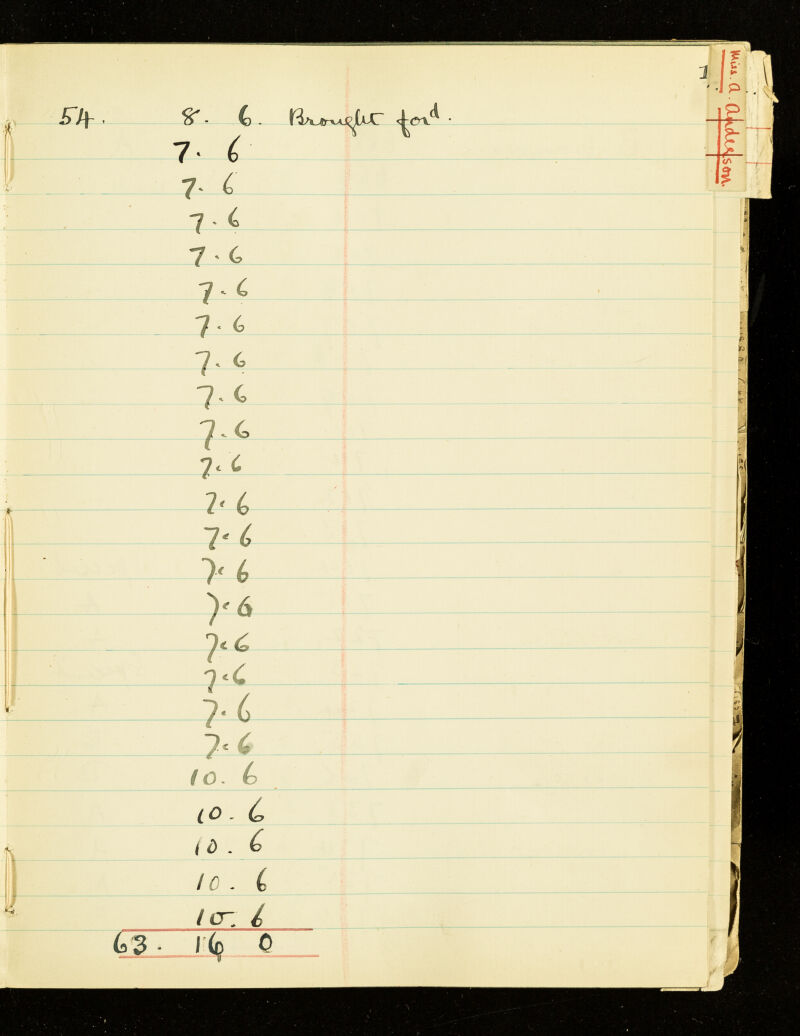 Miss. A. Anderson.
54. 8. 6. Brought for^d.
7. 6
7. 6
7. 6
7. 6
7. 6
7. 6
7. 6
7. 6
7. 6
7. 6
7. 6
7. 6
7. 6
7. 6
7. 6
7. 6
7. 6
7. 6
10. 6
10. 6
10. 6
10. 6
10. 6
63. 16 0